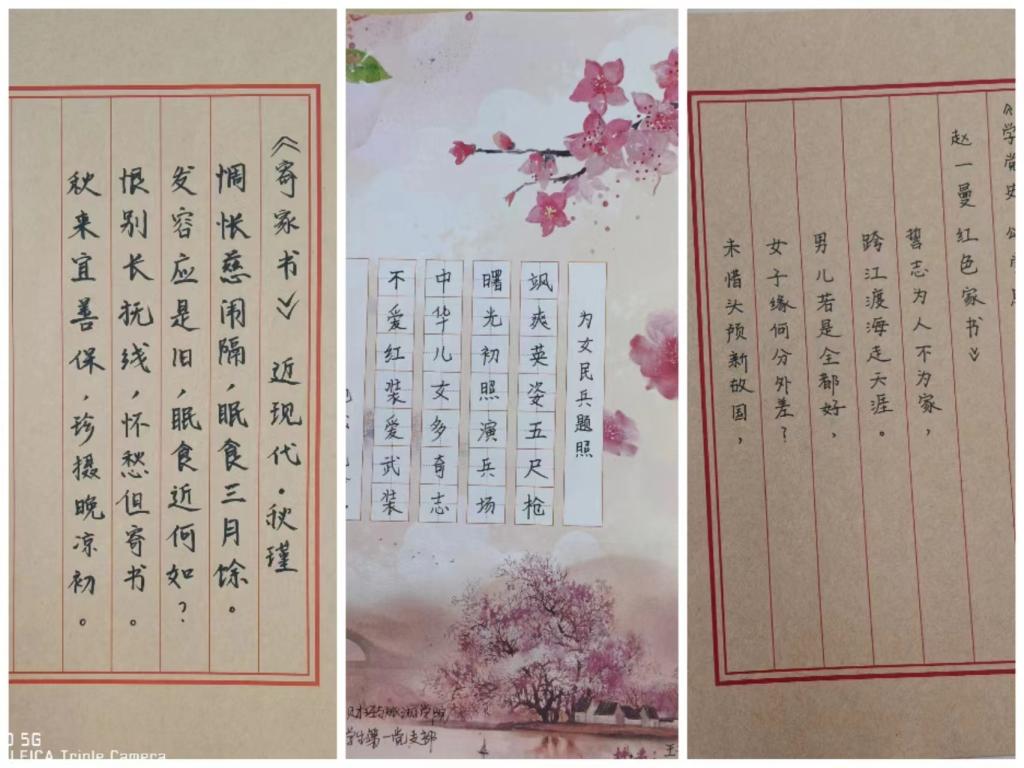 《寄家书》 近现代·秋瑾
惆怅慈闹隔,眠食三月馀。
发容应是旧,眠食近何如?
恨别长抚线,怀愁但寄书。
秋来宜善保,珍摄晚凉初。
5G
LEICA Triple Camera
为女民兵题照
飒爽英姿五尺枪
曙光初照演兵场
中华儿女多奇志
不爱红装爱武装
财经与旅游学院
学生第一党支部
《学党史
赵一曼红色家书》
誓志为人不为家,
跨江渡海走天涯。
男儿若是全都好,
女子缘何分外差?
未惜头颅新故国,